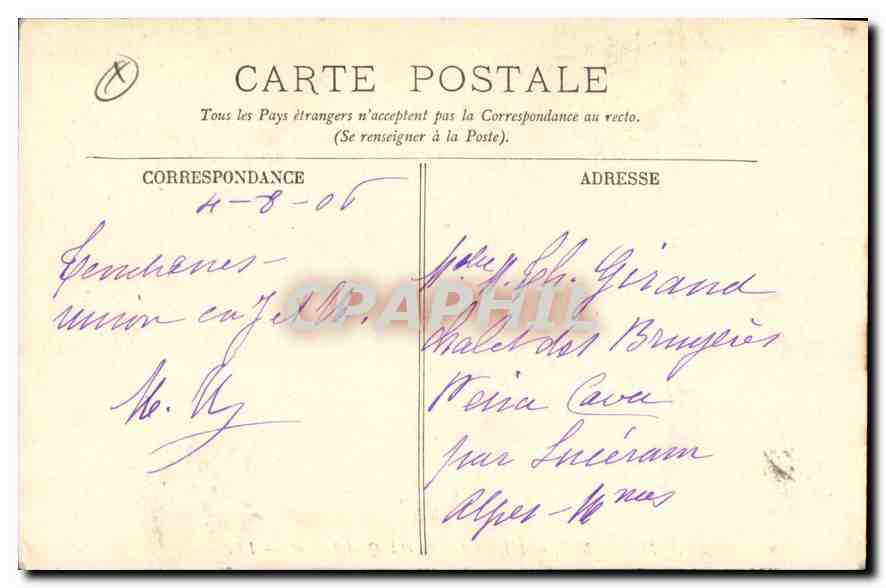 CARTE POSTALE
Tous les Pays étrangers n'acceptent pas la Correspondance au recto.
(Se renseigner à la Poste).
CORRESPONDANCE
4-8-06
Tendresses
union en J et M.
ADRESSE
Th. Girand
Chalet des Bruyères
Peira Cava
par Lucéram
Alpes-Mmes
CPAPHIL